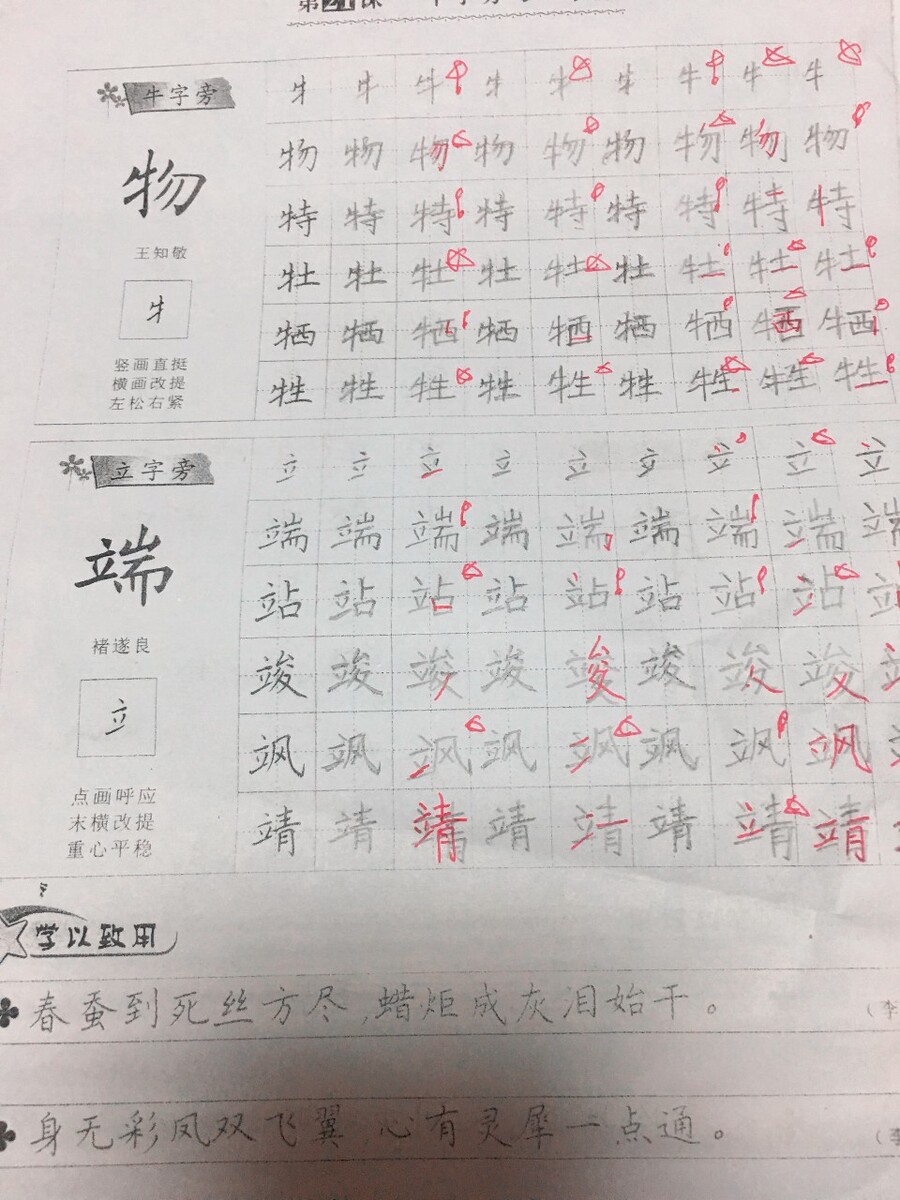 第21课
牛字旁
牛 牛 牛 牛 牛 牛 牛 牛 牛
物
物 物 物 物 物 物 物 物 物
王知敬
特 特 特 特 特 特 特 特 特
牛
牡 牡 牡 牡 牡 牡 牡 牡 牡
竖画直挺
横画改提
左松右紧
牺 牺 牺 牺 牺 牺 牺 牺 牺
牲 牲 牲 牲 牲 牲 牲 牲 牲
立字旁
立 立 立 立 立 立 立 立 立
端
端 端 端 端 端 端 端 端 端
褚遂良
站 站 站 站 站 站 站 站 站
立
竣 竣 竣 竣 竣 竣 竣 竣
飒 飒 飒 飒 飒 飒 飒 飒
点画呼应
末横改提
重心平稳
靖 靖 靖 靖 靖 靖 靖 靖
学以致用
春蚕到死丝方尽,蜡炬成灰泪始干。(李
身无彩凤双飞翼,心有灵犀一点通。(李